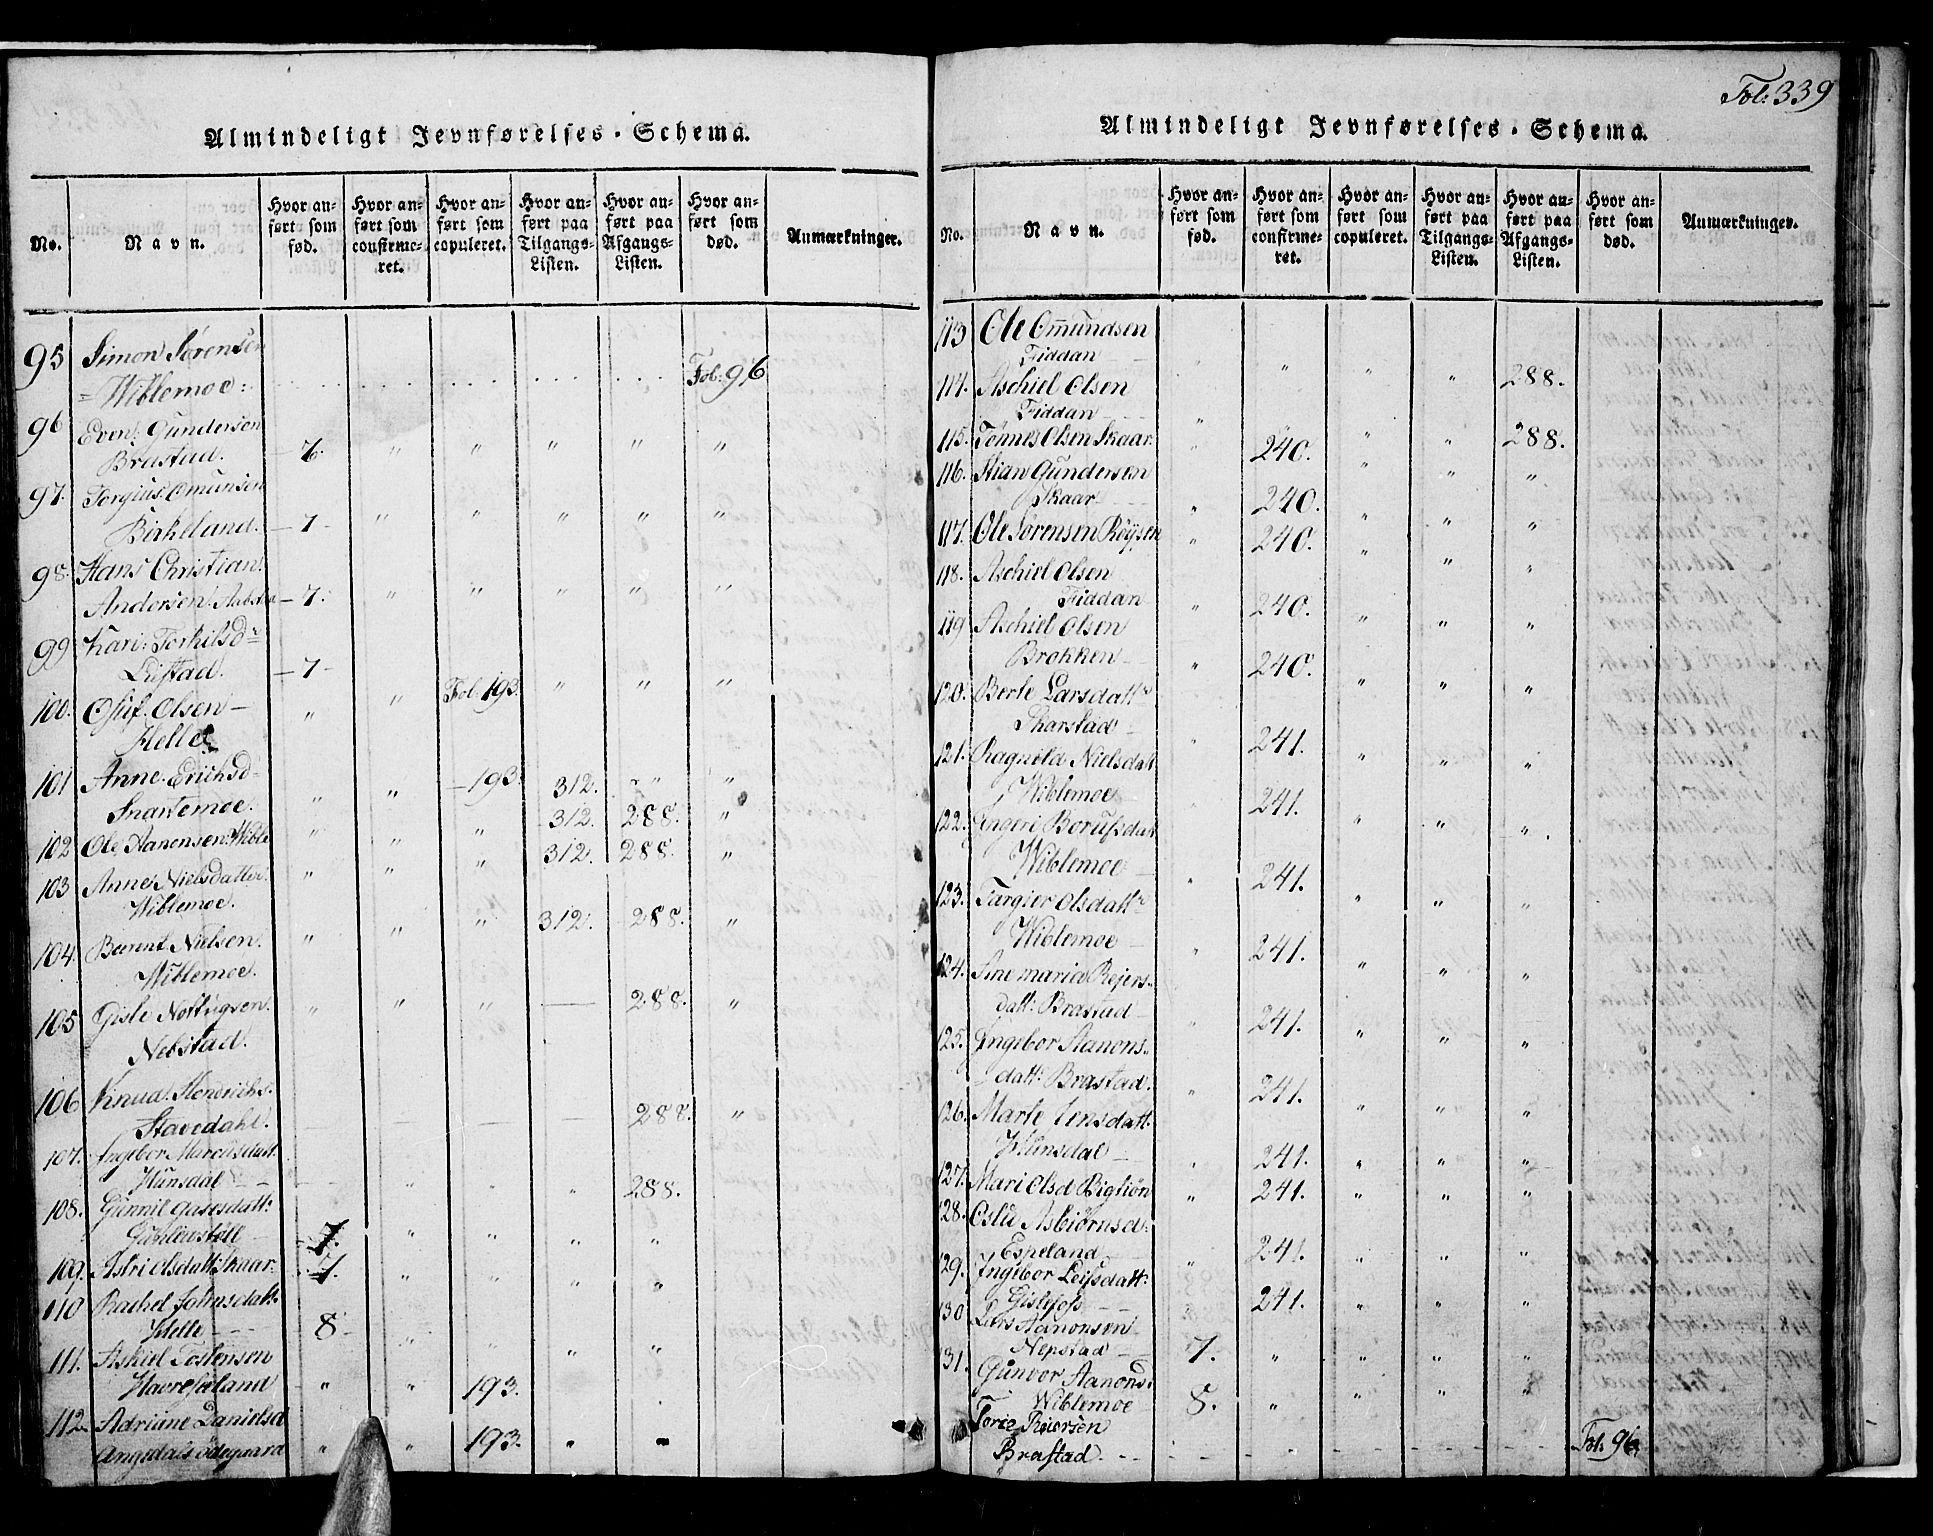 Almindeligt Jevnførelses-Schema.
No.
Navn.
Hvor an-
ført som
fød.
Hvor an-
ført som
confirme-
ret.
Hvor an-
ført som
copuleret.
Hvor an-
ført paa
Tilgangs-
Listen.
Hvor an-
ført paa
Afgangs-
Listen.
Hvor an-
ført som
død.
Anmærkninger.
95 Simon Sørensen
=Wiblemoe: Fol: 96
96 Even: Gundersen
Brastad. - 7. " " " " "
97. Torgius: Omunsen
Birkeland. - 7 - " " " " "
98. Hans Christian:
Andersen: - 7. " " " " "
99 Kari: Torkilsd:
Listad. - 7 -
100. Oluf. Olsen - " " Fol 193. " " "
Helle
101 Anne. Erichsd= " " - 193. 312. " "
Snartemoe. 312. 288. "
102 Ole Aanonsen: Wible " " " 312. 288. "
103 Anne Nielsdatter: " "
Wiblemoe. " 312. 288. "
104. Berent Nielsen. " "
Wiblemoe.
105 Gisle " " " — 288. "
Nebstad.
106 Knud. Hendrichs.
Stavedahl. — 288. "
107. Ingebor Marcusdatt.
Hunsdal - - " " " 288.
108. Gunnil
7. " " " "
109. Astri Olsdatt: Skaar. 7. " " " "
110 Rachel Johnsdatt:
Helle - - - 8 - " " " "
111. Askiel Tostensen
Havreseland " " 193.
112. Adriane Danielsd
Angedals ødegaard " " 193. " "
Fol: 339
Almindeligt Jevnførelses-Schema.
No.
Navn.
Hvor an-
ført som
fød.
Hvor an-
ført som
confirme-
ret.
Hvor an-
ført som
copuleret.
Hvor an-
ført paa
Tilgangs-
Listen.
Hvor an-
ført paa
Afgangs-
Listen.
Hvor an-
ført som
død.
Anmærkninger.
113 Ole Omundsen
Fiddan - " " " " 288.
114. Aschiel Olsen
Fiddan - - " " " " 288.
115. Tønnes Olsen Skaar. " 240. " " "
116. Stian Gundersen
Skaar - " 240. " " "
117. Ole Sørensen Røysen " 240. " " "
118. Aschiel Olsen
Fiddan " 240. " " "
119 Aschiel Olsen
Brokken - " 240. " " "
120. Berte Larsdatt:
Skarstad - " 241. " " "
121. Ragnild Nielsdatt
Wiblemoe - " 241. " " "
122. Ingeri
Wiblemoe - " 241. " " "
123. Targier Olsdatt:
Wiblemoe - " 241. " " "
124. Ane maria Rejers-
datt: Brastad - " 241. " " "
125. Ingebor Aanons-
datt: Brastad. " 241. " " "
126. Marte Jensdatt:
Hunsdal - " 241. " " "
127. Mari Olsd Bigtiøn " 241. " " "
128. Oslu Asbiørnsd:
Espeland - " 241. " " "
129. Ingebor Leifsdatt:
Gislefoss - - " 241. " " "
130 Lars Aanonsen
Nepstad - 7. " " " "
131. Gunvor Aanons:
Wiblemoe 8. " " " "
Torie Reiersen
Brastad. - - - - - - - Fol: 96.